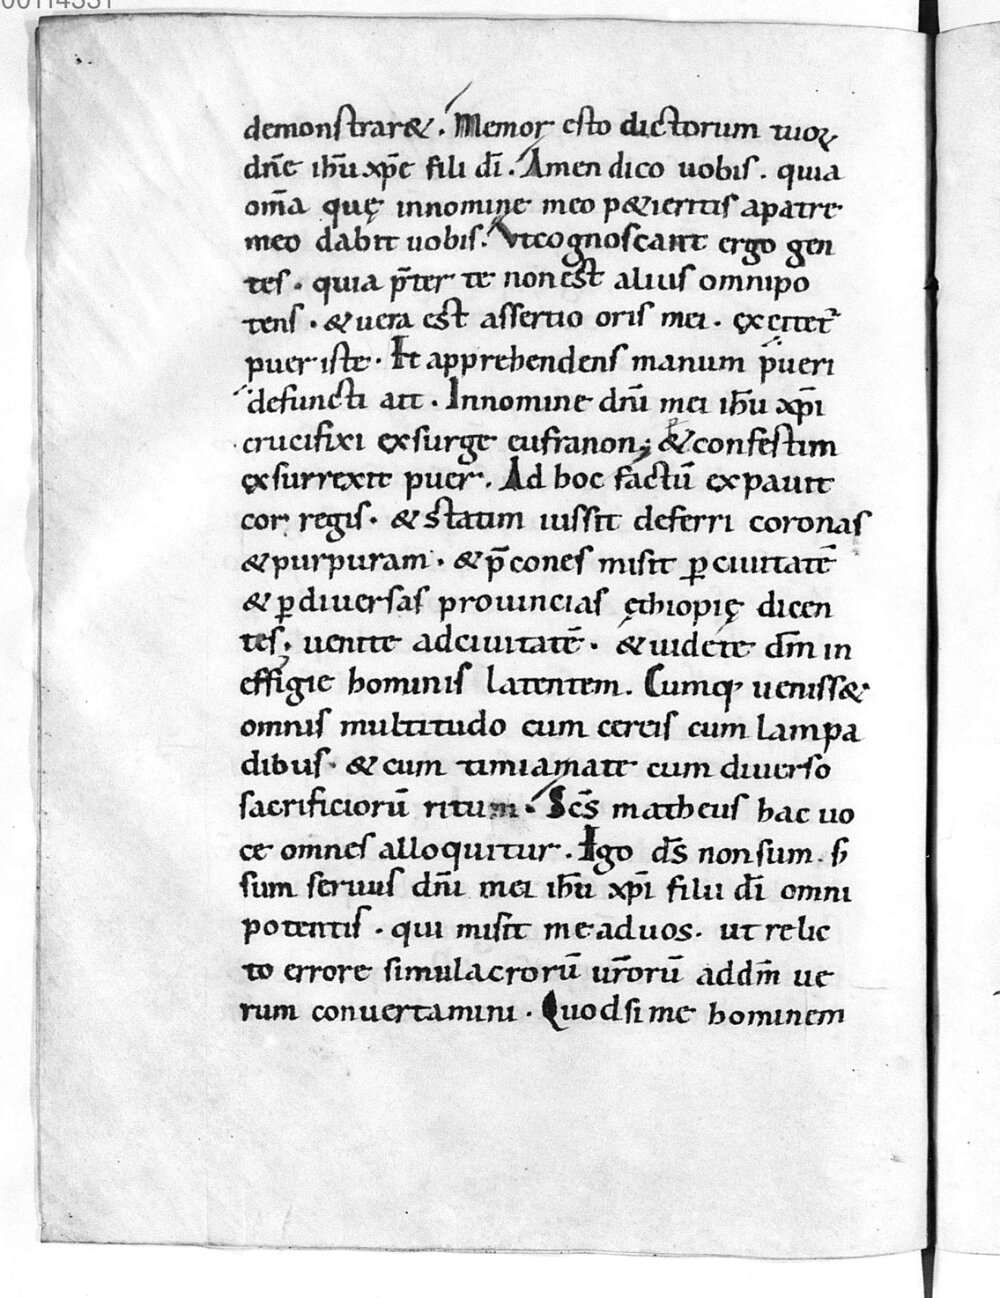 00114331
demonstrar&. Memor esto dictorum tuoꝝ
dn̄e ihū xp̄e fili dī. Amen dico uobis. quia
om̄a quę innomine meo p&ieritis apatre
meo dabit uobis. Vtcognoscant ergo gen
tes. quia p̄ter te non est alius omnipo
tens. & uera est assertio oris mei. excitet᷑
puer iste. Et apprehendens manum pueri
defuncti ait. Innomine dn̄i mei ihū xp̄i
crucifixi exsurge eufranon; & confestim
exsurrexit puer. Ad hoc factū expauit
cor regis. & statim iussit deferri coronas
& purpuram. & p̄cones misit ꝑ ciuitatē
& ꝑ diuersas prouincias ęthiopię dicen
tes; uenite adciuitatē. & uidete dm̄ in
effigie hominis latentem. Cumq; ueniss&
omnis multitudo cum cereis cum lampa
dibus. & cum timiamate cum diuerso
sacrificiorū ritum. Sc̄s matheus hac uo
ce omnes alloquitur. Ego ds̄ non sum. s̄
sum seruus dn̄i mei ihū xp̄i filii dī omni
potentis. qui misit me aduos. ut relic
to errore simulacrorū ur̄orū addm̄ ue
rum conuertamini. Quodsi me hominem